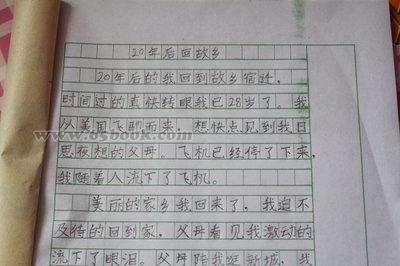 20年后回故乡
20年后的我回到故乡宿迁，
时间过的真快转眼我已28岁了。我
从美国飞驰而来，想快点见到我日
思夜想的父母。飞机已经停了下来，
我随着人流下了飞机。
美丽的家乡我回来了，我迫不
及待的回到家，父母看见我激动的
流下了眼泪。父母陪我逛新城，我
www.05book.com